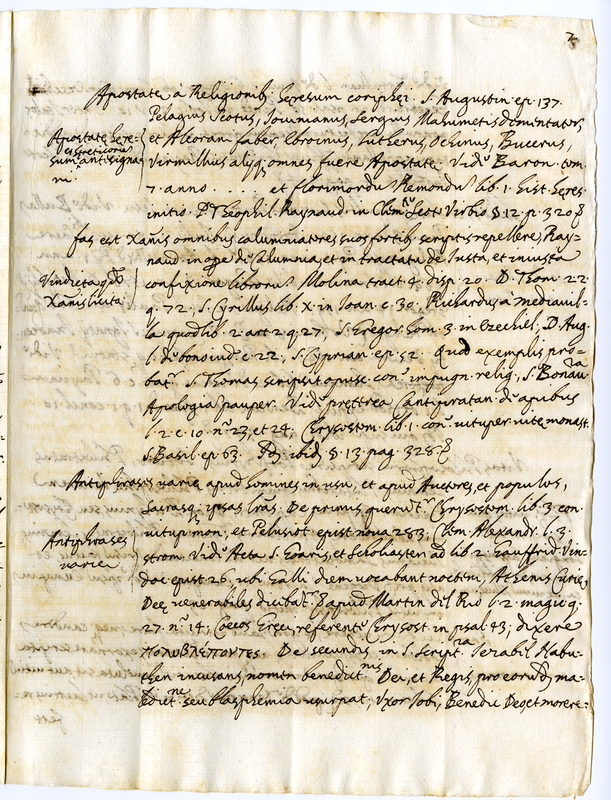 7
Apostatę à Religionibꝫ heresum coryphęi. S. Augustin. ep. 137.
Pelagius Scotus, Jouinianus, Sergius Mahumetis dementator,
Apostatę Here-
et Alcorani faber, Ebroinus, Lutherus, Ochinus, Bucerus,
sum antesigna
Virmilius aliqꝫ omnes fuere Apostatę. Vidę Baron. tom.
ni.
7. anno . . . . . et Florimondū Remondū lib. 1. hist. heres.
initio. P. Theophil. Raynaud. in Scoti Virbio § 12. p. 320
fas est Xānis omnibus calumniatores suos fortibꝫ scriptis repellere, Ray-
naud. in ope de calumnia, et in tractatu de iusta, et iniusta
Vindicta qto
confixione librorū. Molina tract. 4. disp. 20. D. Thom. 22.
Xānis licita.
q. 72. S. Cyrillus lib. X. in Ioan. c. 30. Richardus a mediauil-
la quodlib. 2. art. 2. q. 27, S. Gregor. hom. 3. in Ezechiel, D. Aug.
l. de bono uid. c. 22, S. Cyprian. ep. 52. Quod exemplis pro-
bat S. Thomas scripsit opusc. con. impugn. relig., S. Bonau
Apologia pauper. Vidę pręterea Cantipratan. de apibus
l. 2. c. 10. nº 23, et 24, Chrysostom. lib. 1. con. vituper. vitę monast.
S. Basil. ep. 63. ibidꝫ § 13. pag. 328.
Antiphrases varię apud homines in usu, et apud Auctores, et populos,
Sacrasqꝫ ipsas lras. De primis querunt Chrysostom. lib. 3. con.
Antiphrases
vitup. mon., et Pelusiot. epist. noua 283; Clem. Alexandr. l. 3.
varię
strom. Vide Acta S. Goaris, et Scholiasten ad lib. 2. Gauffrid. Vin-
doc. epist. 26. ubi Galli diem vocabant noctem, Athenis Furię,
Deę venerabiles dicebat apud Martin. del Rio l. 2. magic. q.
27. nº 14; Cęcos Gręci, referente Chrysost. in psal. 43, dixere
πολυβλέποντες. De secundis in S. Script. Iezabel Nabu-
then incusans nomen benedictnis Dei, et Regis, pro eorundꝫ ma-
ledictne seu blasphemia usurpat, Vxor Iobi, Benedic Deo, et morere.